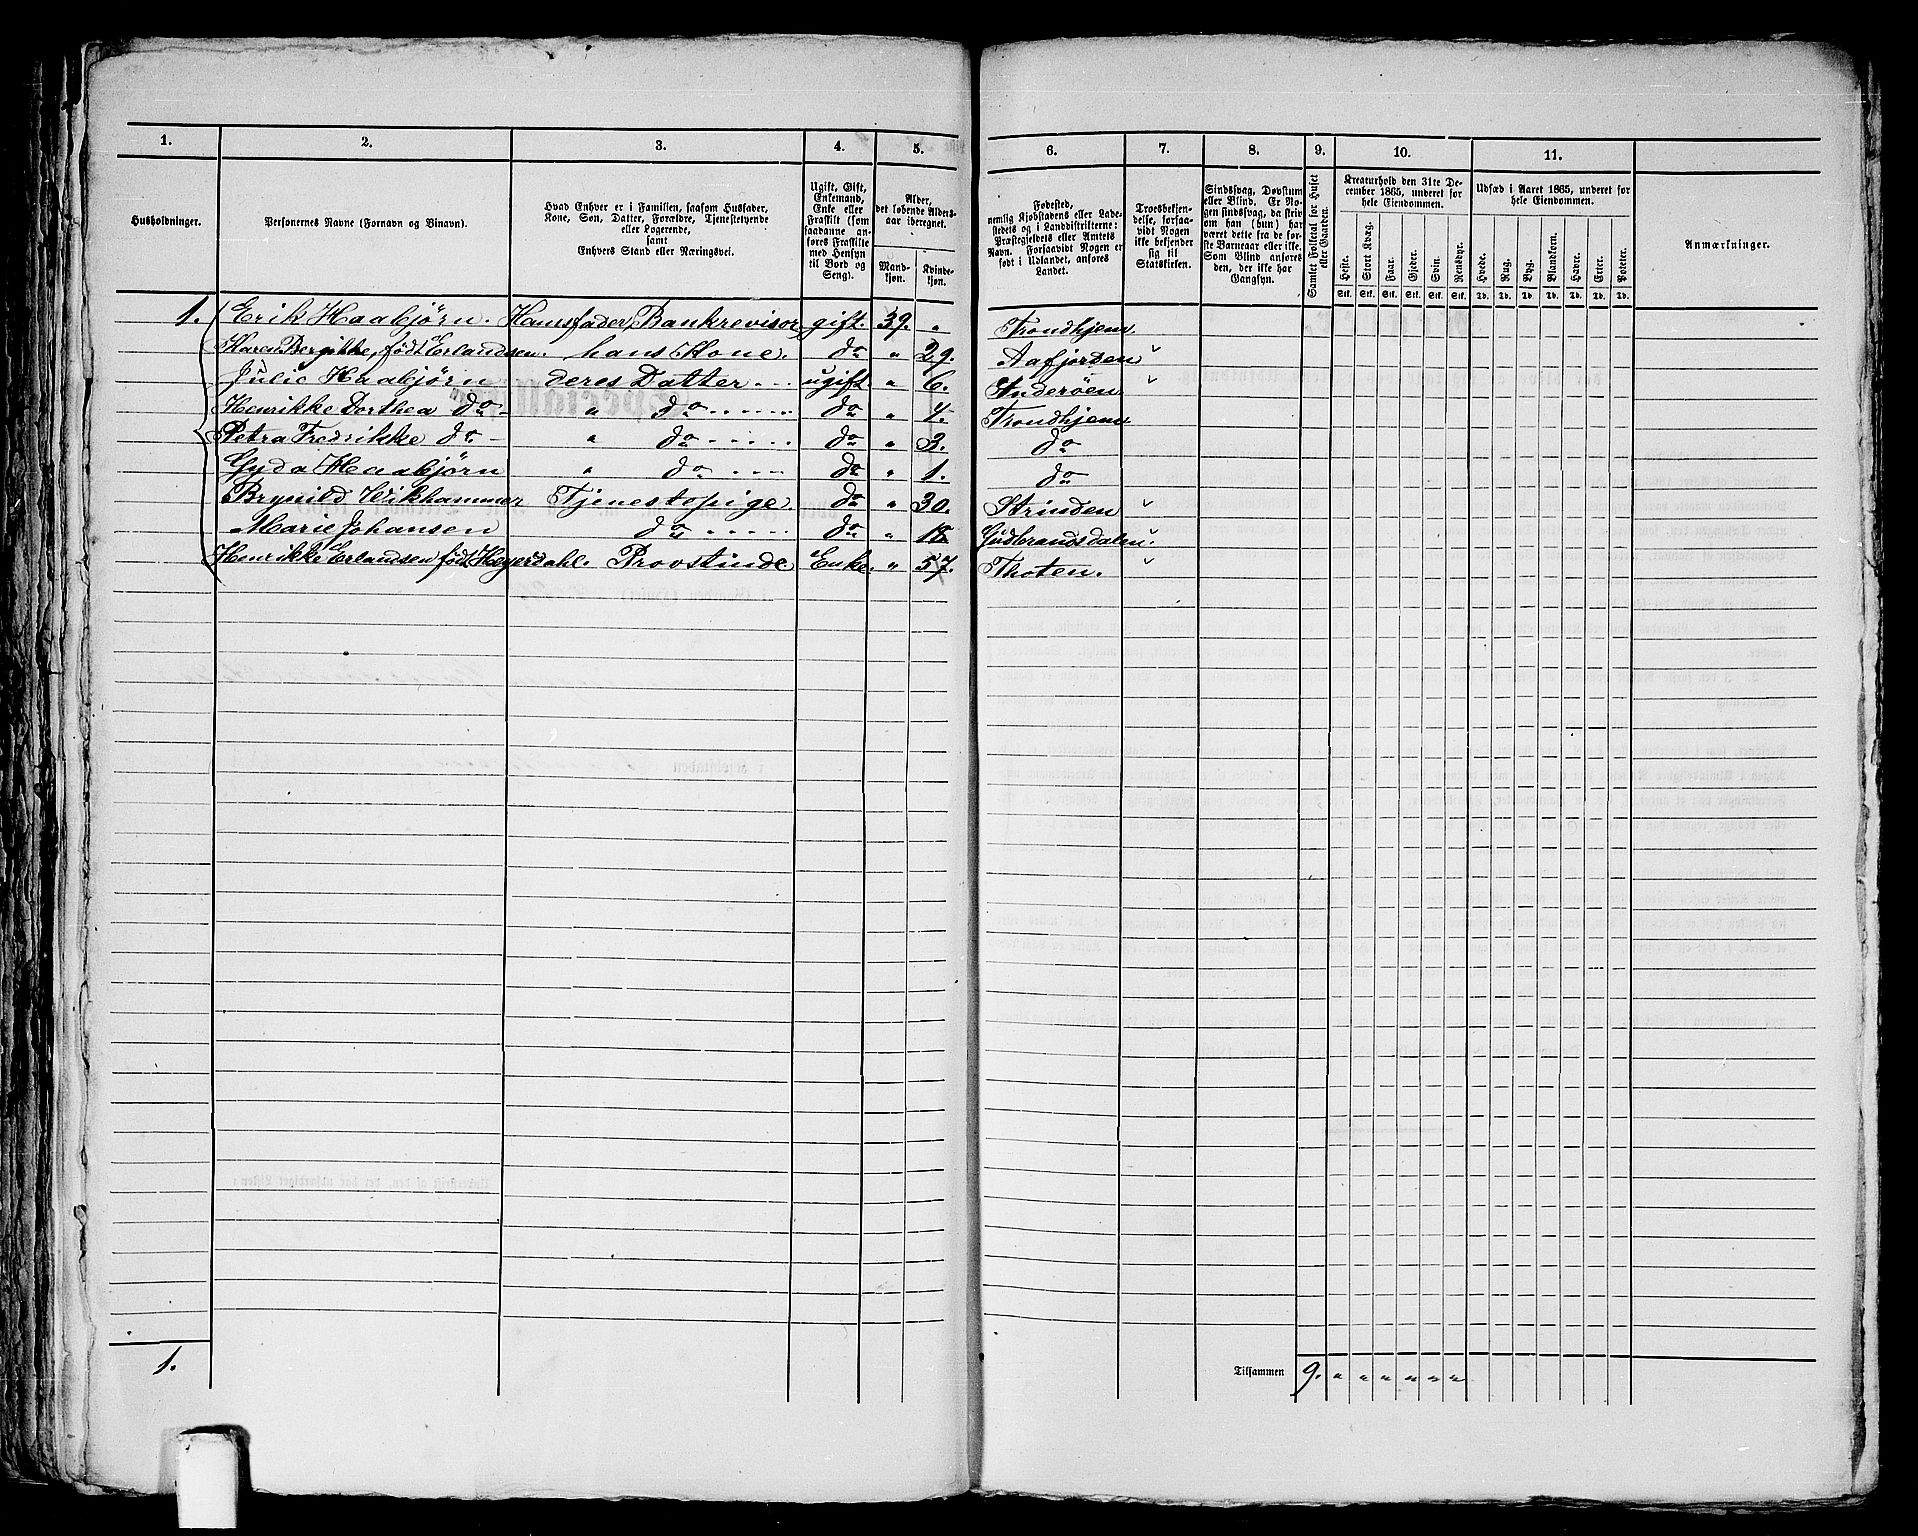 1. 2. 3. 4. 5. 6. 7. 8. 9. 10. 11.
Husholdninger.
Personernes Navne (Fornavn og Tilnavn).
Hvad Enhver er i Familien, saasom Husfader,
Kone, Søn, Datter, Forældre, Tjenestetyende
eller Logerende,
samt
Enhvers Stand eller Næringsvei.
Ugift, Gift,
Enkemand,
Enke eller
Fraskilt (som
saadanne an-
føres Fraskilte
med Hensyn
til Bord og
Seng).
Alder,
det løbende Alders-
aar iberegnet.
Mand-
kjøn.
Kvinde-
kjøn.
Fødested,
nemlig Kjøbstadens eller Lade-
stedets og i Landdistrikterne:
Præstegjeldets eller Amtets
Navn. Forsaavidt Nogen er
født i Udlandet, anføres
Landet.
Troesbekjen-
delse, forsaa-
vidt Nogen
ikke bekjender
sig til
Statskirken.
Sindssvag, Døvstum
eller Blind. Er No-
gen sindssvag, da skriv
om han (hun) har
været dette fra de før-
ste Barneaar eller ikke.
Som Blind anføres
den, der ikke har
Gangsyn.
Samlet Folketal for Huset
eller Gaarden.
Kreaturhold den 31te De-
cember 1865, underet for
hele Eiendommen.
Heste. Stort Kvæg. Faar. Gjeder. Svin. Rensdyr.
Stk. Stk. Stk. Stk. Stk. Stk.
Udsæd i Aaret 1865, underet for
hele Eiendommen.
Hvede. Rug. Byg. Blandkorn. Havre. Erter. Poteter.
Td. Td. Td. Td. Td. Td. Td.
Anmærkninger.
1. Erik Haabjørn. Huusfader, Bankrevisor gift. 39. " Trondhjem.
Karen Bergitte, født Erlandsen. hans Kone. do " 29. Aafjorden "
Julie Haabjørn deres Datter ugift. " 6. Inderøen "
Henrikke Dorthea do " do do " 4. Trondhjem
Petra Fredrikke do " do do " 3. do
Gyda Haabjørn " do do " 1. do
Brynild Wikhammer Tjenestepige. do " 30. Strinden "
Marie Johansen do do " 18 Gudbrandsdalen "
Henrikke Erlandsen født Heyerdahl. Provstinde Enke. " 57. Thoten. "
1.
Tilsammen 9. " " " " " "